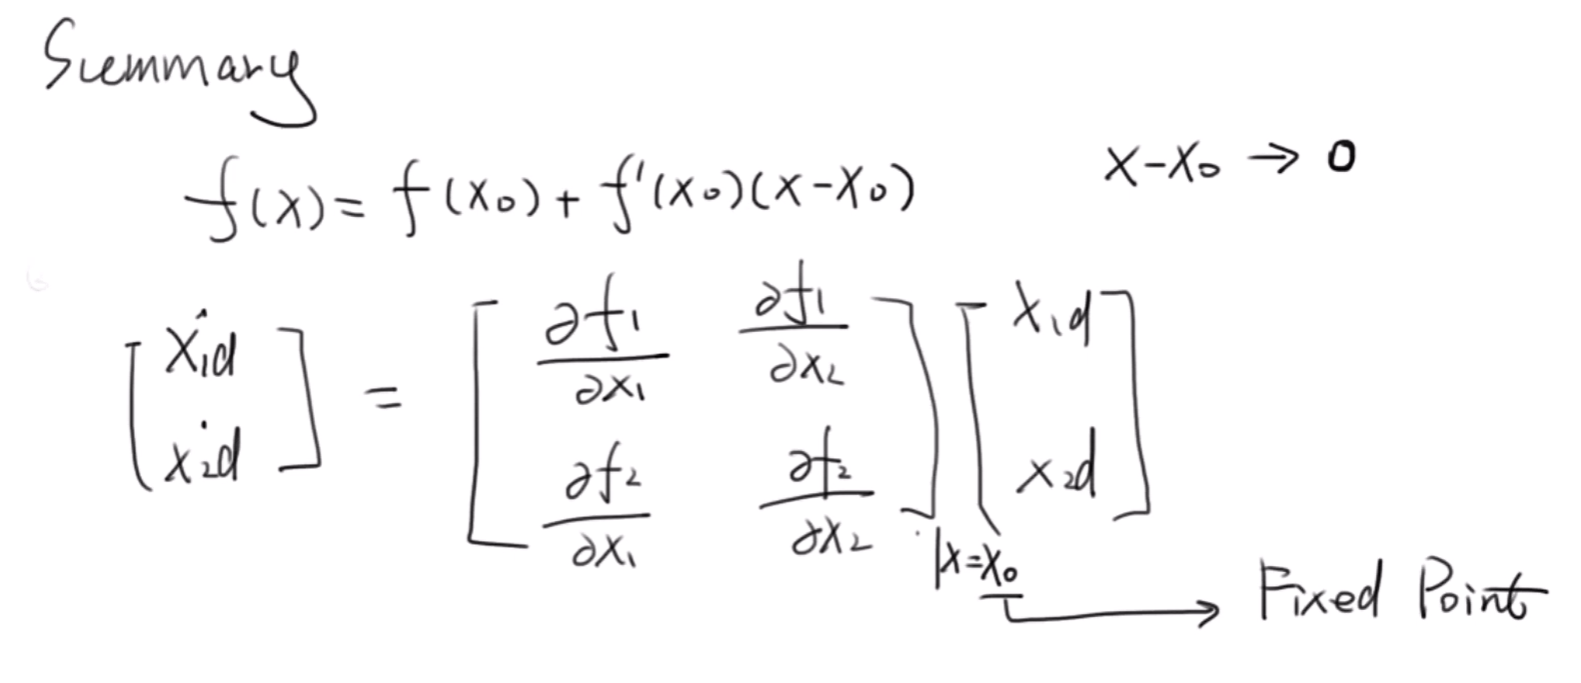 Summary
f(x) = f(x₀) + f'(x₀)(x-x₀)    x-x₀ → 0
[ẋ₁d; ẋ₂d] = [∂f₁/∂x₁  ∂f₁/∂x₂; ∂f₂/∂x₁  ∂f₂/∂x₂] |x=x₀ [x₁d; x₂d]
→ Fixed Point